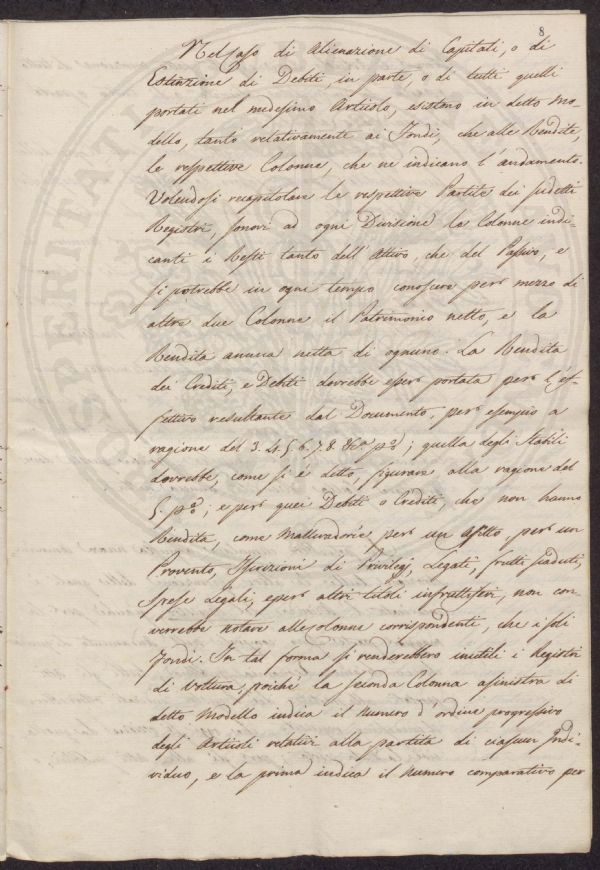 8
Nel caso di Alienazione di Capitali, o di
Estinzione di Debiti, in parte, o di tutti quelli
portati nel medesimo Articolo, esistono in detto mo-
dello, tanto relativamente ai Fondi, che alle Rendite,
le respettive Colonne, che ne indicano l'andamento.
Volendosi recapitolare le respettive Partite dei sudetti
Registri, sonovi ad ogni Divisione le Colonne indi-
canti i Resti tanto dell'Attivo, che del Passivo, e
si potrebbe in ogni tempo conoscere per mezzo di
altre due Colonne il Patrimonio netto, e la
Rendita ancora netta di ognuno. La Rendita
dei Crediti, e Debiti dovrebbe esser portata per l'ef-
fettivo resultante dal Documento, per esempio a
ragione del 3. 4. 5. 6. 7. 8. &ca p%; quella degli Stabili
dovrebbe, come si è detto, figurare alla ragione del
5. p%; e per quei Debiti o Crediti, che non hanno
Rendita, come Mallevadorie per un Affitto per un
Provento, Iscrizioni di Privilegj, Legati, frutti scaduti,
Spese Legali, e per altri titoli infruttiferi, non con-
verrebbe notare alle Colonne corrispondenti, che i soli
Fondi. In tal forma si renderebbero inutili i Registri
di Voltura, poiché la seconda Colonna a sinistra di
detto Modello indica il Numero d'ordine progressivo
degli Articoli relativi alla partita di ciascun Indi-
viduo, e la prima indica il Numero comparativo per
PROSPERITATI